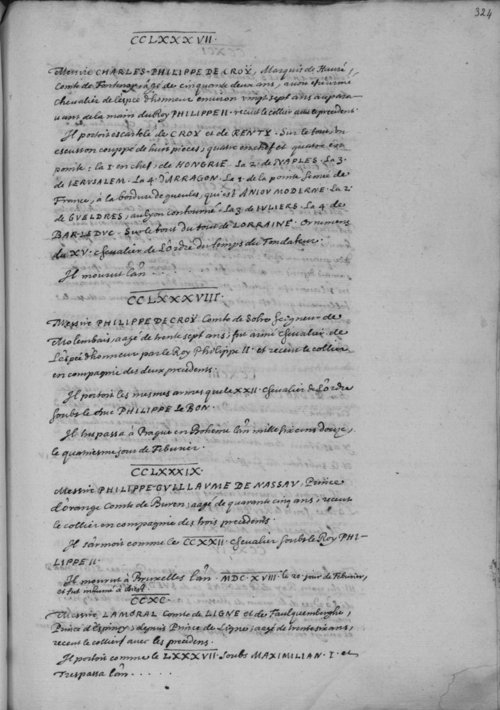 324
CCLXXXVII.
Messire CHARLES-PHILIPPE DE CROŸ, Marquis de Havré,
Comte de Fontenoy, âgé de cinquante deux ans, avoit esté armé
chevalier de l'espée d'honneur environ vingt sept ans aupara-
uant de la main du Roy PHILIPPE II. receut le collier auec le precedent.
Il portoit escartelé de CROŸ et de RENTY. Sur le tout un
escusson couppé de huit pieces; quatre en chef et quatre en
pointe: la 1. en chef, de HONGRIE. La 2. de NAPLES. La 3.
de IERUSALEM. La 4. d'ARRAGON. La 1. de la pointe Semé de
France, à la bordure de gueules, qui est ANIOV MODERNE. La 2.
de GVELDRES, au lyon contourné. La 3. de IVLIERS. La 4. de
BAR-LE-DVC. Sur le tout du tout de LORRAINE. Ornemens
du XV. chevalier de L'ordre du temps du Fondateur.
Il mourut l'an
CCLXXXVIII.
Messire PHILIPPE DE CROŸ Comte de Solre Seigneur de
Molembais, aagé de trente sept ans; fut armé chevalier de
L'espée d'honneur par le Roy Philippe II. et receut le collier
en compagnie des deux precedents.
Il portoit les mesmes armes que le XXII. chevalier de L'ordre
soubs le duc PHILIPPE LE BON.
Il trespassa à Prague en Boheme l'an mille six cens douze,
le quatriesme jour de Feburier.
CCLXXXIX.
Messire PHILIPPE GVILLAVME DE NASSAV, Prince
d'Orange Comte de Buren, aagé de quarante cinq ans, receut
le collier en compagnie des trois precedents.
Il s'armoit comme le CCXXII. chevalier soubs le Roy PHI-
LIPPE II.
Il mourut à Bruxelles l'an MDC.XVIII. le 20. jour de Feburier,
et fut inhumé à Diest.
CCXC.
Messire LAMORAL Comte de LIGNE et de Faulquemberghe,
Prince d'Espinoy; depuis Prince de Ligne, aagé de trente six ans,
receut le collier auec les precedens.
Il portoit comme le LXXXVII. soubs MAXIMILIAN. I. et
Trespassa l'an . . . . .